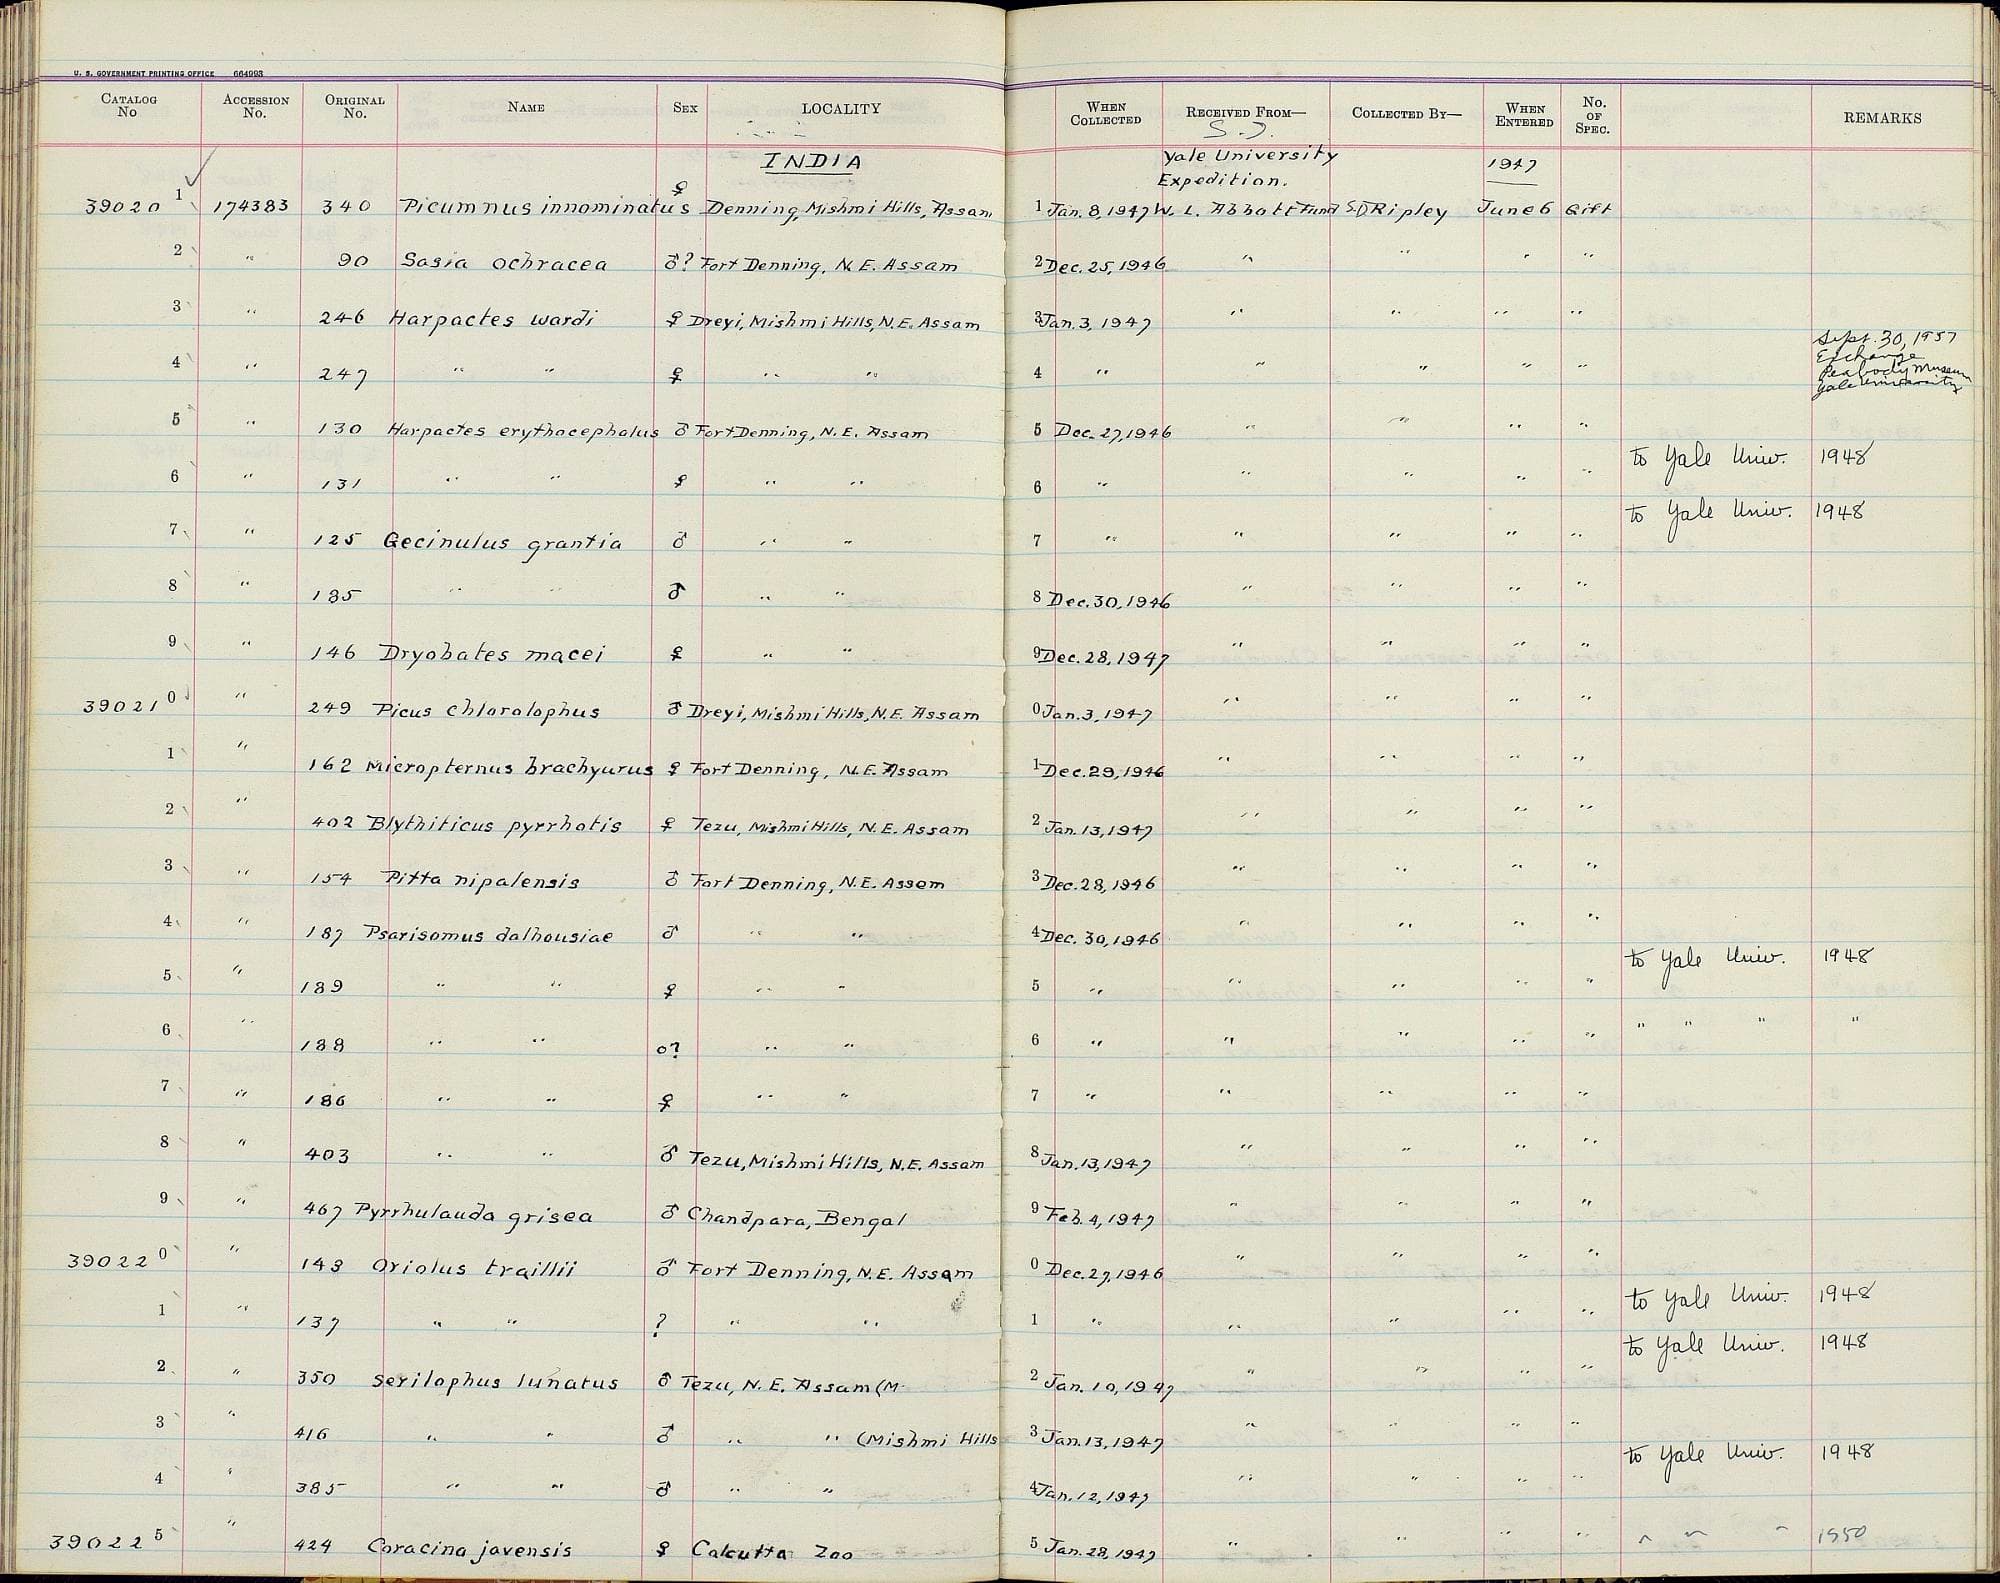 U. S. GOVERNMENT PRINTING OFFICE 664993
CATALOG No ACCESSION No. ORIGINAL No. NAME SEX LOCALITY WHEN COLLECTED RECEIVED FROM— COLLECTED BY— WHEN ENTERED No. OF SPEC. REMARKS
S. D.
INDIA Yale University Expedition. 1947
390201 174383 340 Picumnus innominatus ♀ Denning, Mishmi Hills, Assam 1 Jan. 8, 1947 W. L. Abbott Fund S.D Ripley June 6 Gift
2 " 90 Sasia ochracea ♂? Fort Denning, N.E. Assam 2 Dec. 25, 1946 " " " "
3 " 246 Harpactes wardi ♀ Dreyi, Mishmi Hills, N.E. Assam 3 Jan. 3, 1947 " " " "
4 " 247 " " ♀ " " 4 " " " " " Sept. 30, 1957 Exchange Peabody Museum Yale University
5 " 130 Harpactes erythocephalus ♂ Fort Denning, N.E. Assam 5 Dec. 27, 1946 " " " "
6 " 131 " " ♀ " " 6 " " " " " to Yale Univ. 1948
7 " 125 Gecinulus grantia ♂ " " 7 " " " " " to Yale Univ. 1948
8 " 185 " " ♂ " " 8 Dec. 30, 1946 " " " "
9 " 146 Dryobates macei ♀ " " 9 Dec. 28, 1947 " " " "
390210 " 249 Picus chlorolophus ♂ Dreyi, Mishmi Hills, N.E. Assam 0 Jan. 3, 1947 " " " "
1 " 162 Micropternus brachyurus ♀ Fort Denning, N.E. Assam 1 Dec. 29, 1946 " " " "
2 " 402 Blythiticus pyrrhotis ♀ Tezu, Mishmi Hills, N.E. Assam 2 Jan. 13, 1947 " " " "
3 " 154 Pitta nipalensis ♂ Fort Denning, N.E. Assam 3 Dec. 28, 1946 " " " "
4 " 187 Psarisomus dalhousiae ♂ " " 4 Dec. 30, 1946 " " " "
5 " 189 " " ♀ " " 5 " " " " " to Yale Univ. 1948
6 " 188 " " o? " " 6 " " " " " " " " "
7 " 186 " " ♀ " " 7 " " " " "
8 " 403 " " ♂ Tezu, Mishmi Hills, N.E. Assam 8 Jan. 13, 1947 " " " "
9 " 467 Pyrrhulauda grisea ♂ Chandpara, Bengal 9 Feb. 4, 1947 " " " "
390220 " 143 Oriolus traillii ♂ Fort Denning, N.E. Assam 0 Dec. 27, 1946 " " " "
1 " 137 " " ? " " 1 " " " " " to Yale Univ. 1948
2 " 350 Serilophus lunatus ♂ Tezu, N.E. Assam (M 2 Jan. 10, 1947 " " " " to Yale Univ. 1948
3 " 416 " " ♂ " " (Mishmi Hills 3 Jan. 13, 1947 " " " "
4 " 385 " " ♂ " " 4 Jan. 12, 1947 " " " " to Yale Univ. 1948
390225 " 424 Coracina javensis ♀ Calcutta Zoo 5 Jan. 28, 1947 " " " " " " " 1950